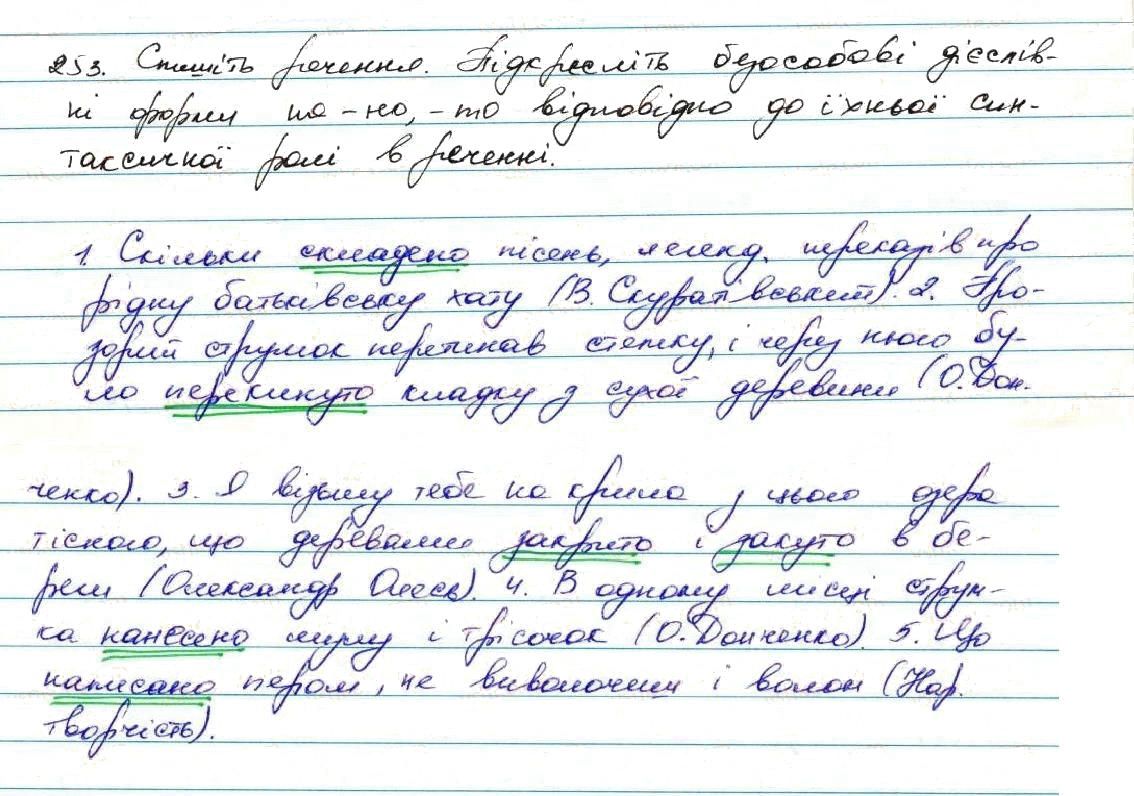 253. Спишіть речення. Підкресліть безособові дієслів-
ні форми на -но, -то відповідно до їхньої син-
таксичної ролі в реченні.
1. Скільки складено пісень, легенд, переказів про
рідну батьківську хату (В. Скуратівський). 2. Про-
зорий струмок перетинав стежку, і через нього бу-
ло перекинуто кладку з сухої деревини (О. Дон.
ченко). 3. Я візьму тебе на крила з цього озера
тісного, що деревами закрито і закуто в бе-
реги (Олександр Олесь). 4. В одному місці струм-
ка нанесено мулу і трісочок (О. Донченко). 5. Що
написано пером, не виволочиш і волом (Нар.
творчість).